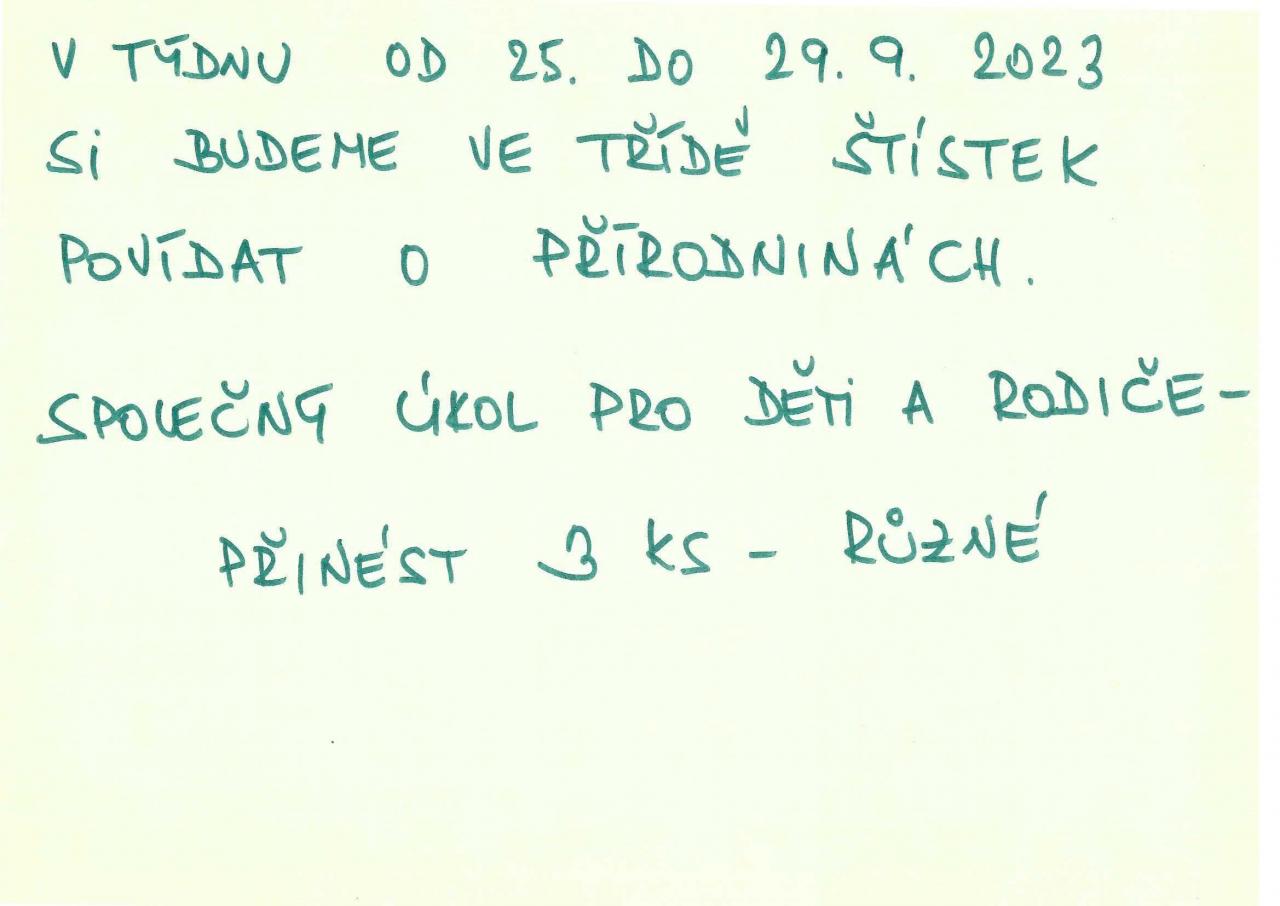 V TÝDNU OD 25. DO 29. 9. 2023
SI BUDEME VE TŘÍDĚ ŠTÍSTEK
POVÍDAT O PŘÍRODNINÁCH.
SPOLEČNÝ ÚKOL PRO DĚTI A RODIČE –
PŘINÉST 3 KS – RŮZNÉ